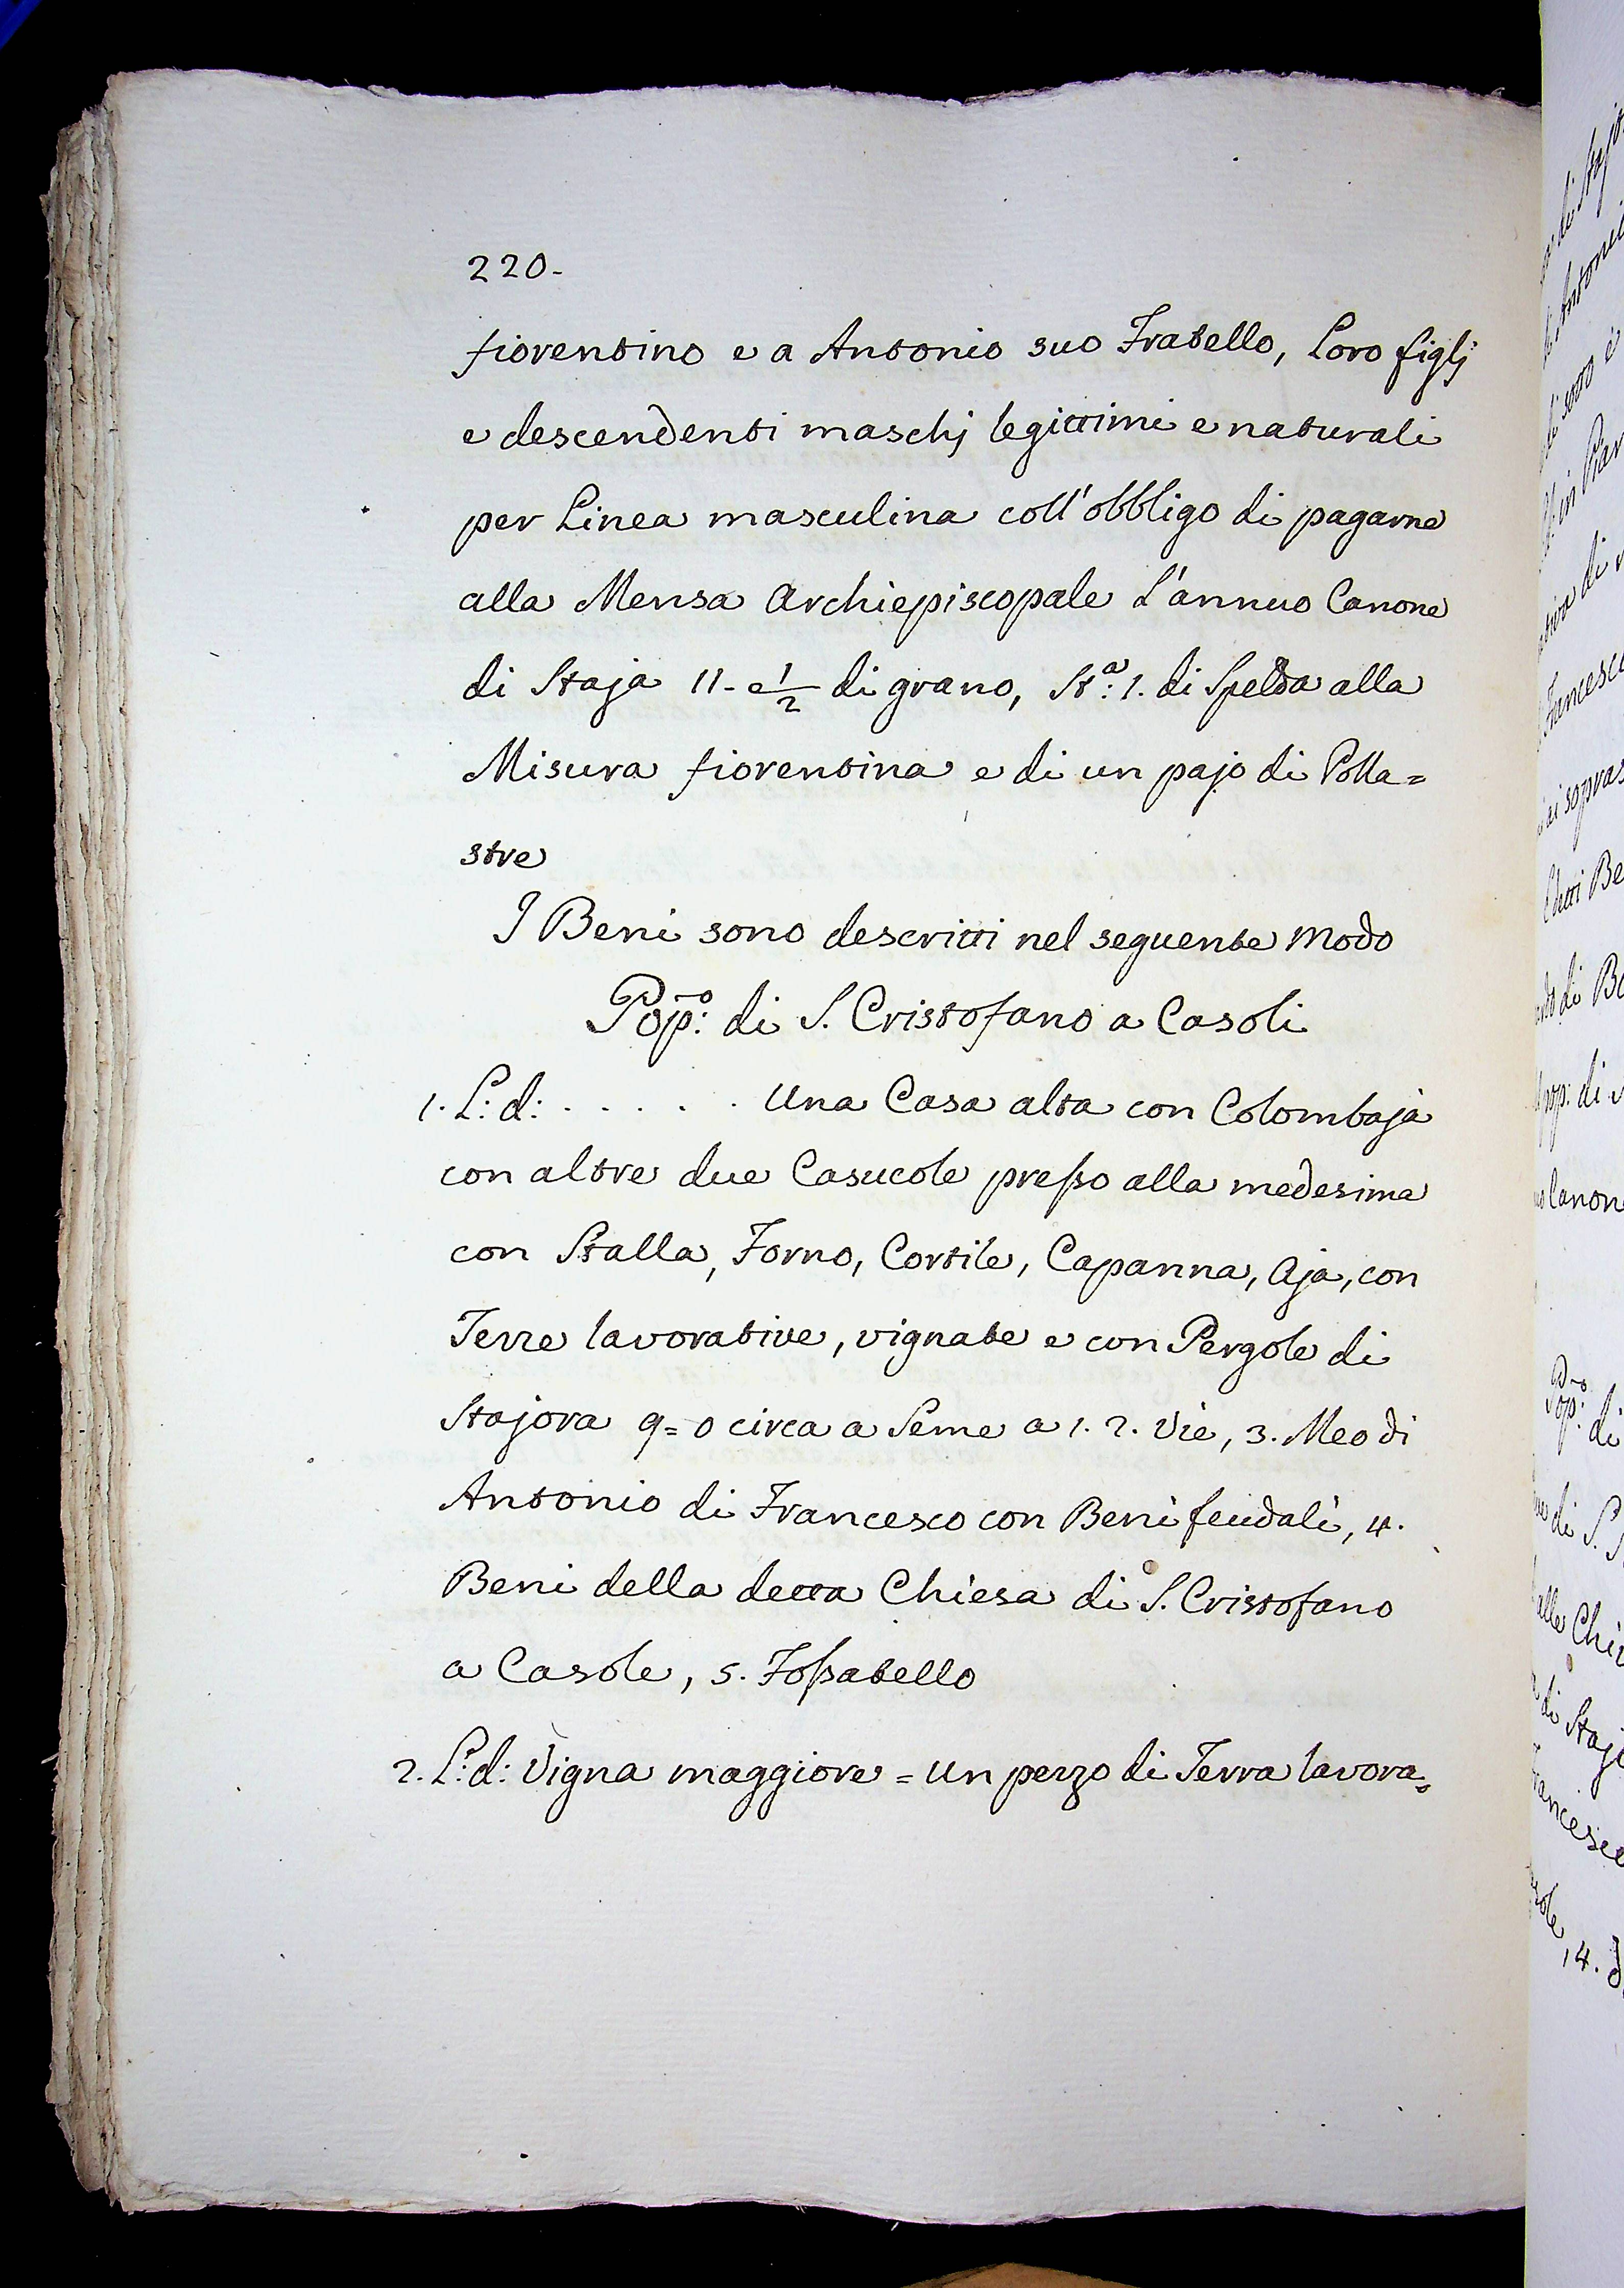 220.
fiorentino e a Antonio suo Fratello, Loro figlj
e descendenti maschj legittimi e naturali
per Linea masculina coll'obbligo di pagarne
alla Mensa Archiepiscopale L'annuo Canone
di Staja 11. e 1/2 di grano, St.ª: 1. di Spelda alla
Misura fiorentina e di un pajo di Polla=
stre
I Beni sono descritti nel seguente Modo
Pop:º di S. Cristofano a Casoli
1. L: d: . . . . . . Una Casa alta con Colombaja
con altre due Casucole presso alla medesima
con Stalla, Forno, Cortile, Capanna, Aja, con
Terre lavorative, vignate e con Pergole di
Stajora 9=0 circa a Seme a 1. 2. Vie, 3. Meo di
Antonio di Francesco con Beni feudali, 4.
Beni della detta Chiesa di S. Cristofano
a Casole, 5. Fossatello
2. L: d: Vigna maggiore = un pezzo di Terra lavora=